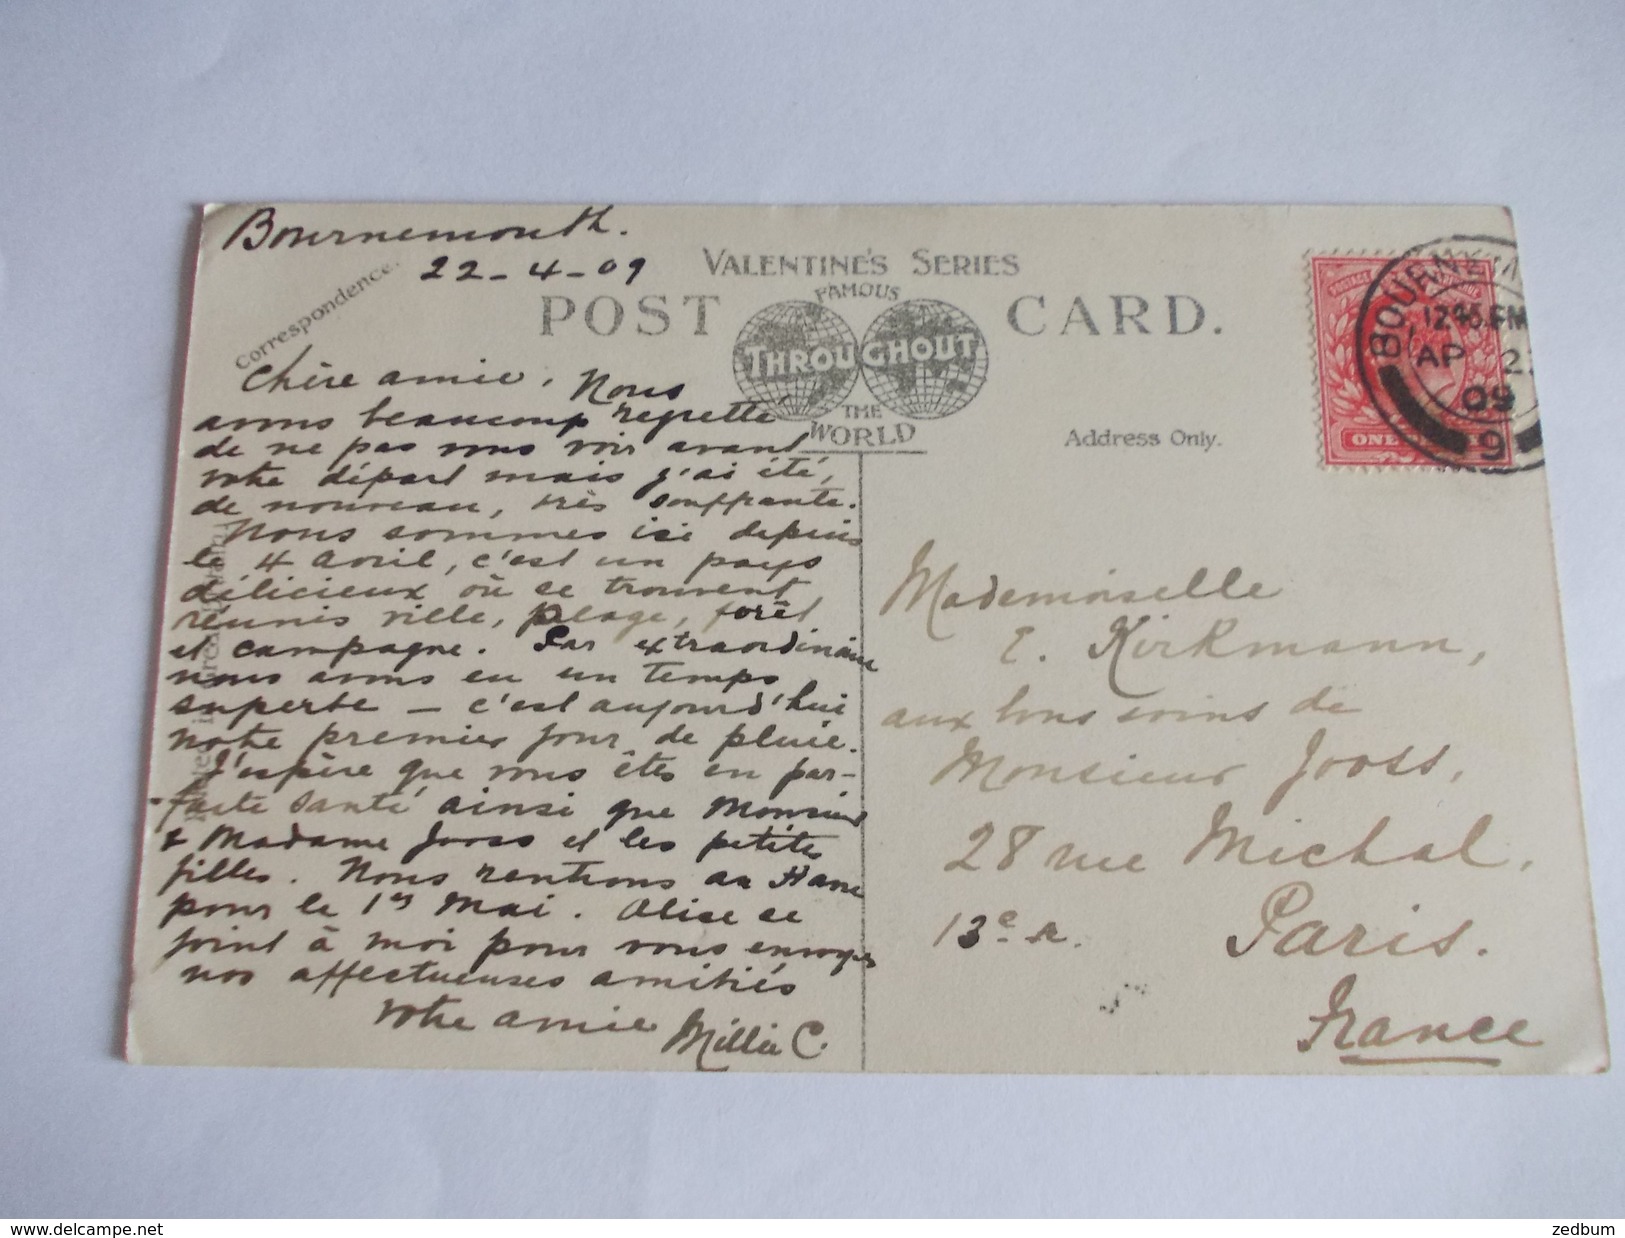 Bournemouth.
22-4-09
Correspondence.
VALENTINE'S SERIES
POST CARD.
FAMOUS
THROUGHOUT
THE
WORLD
Address Only.
BOURNEM
12.45.PM
AP 22
09
9
ONE
Chère amie, Nous
avons beaucoup regretté
de ne pas vous voir avant
votre départ mais j'ai été,
de nouveau, très souffrante.
Nous sommes ici depuis
le 4 avril, c'est un pays
délicieux où se trouvent
réunis ville, plage, forêt
et campagne. Par extraordinaire
nous avons eu un temps
superbe – c'est aujourd'hui
notre premier jour de pluie.
J'espère que vous êtes en par-
faite santé ainsi que Monsieur
& Madame Jooss et les petites
filles. Nous rentrons au Havre
pour le 1er Mai. Alice se
joint à moi pour vous envoyer
nos affectueuses amitiés
Votre amie Millie C.
Mademoiselle
E. Kirkmann,
aux bons soins de
Monsieur Jooss,
28 rue Michal,
13e a. Paris.
France
zedbum
www.delcampe.net